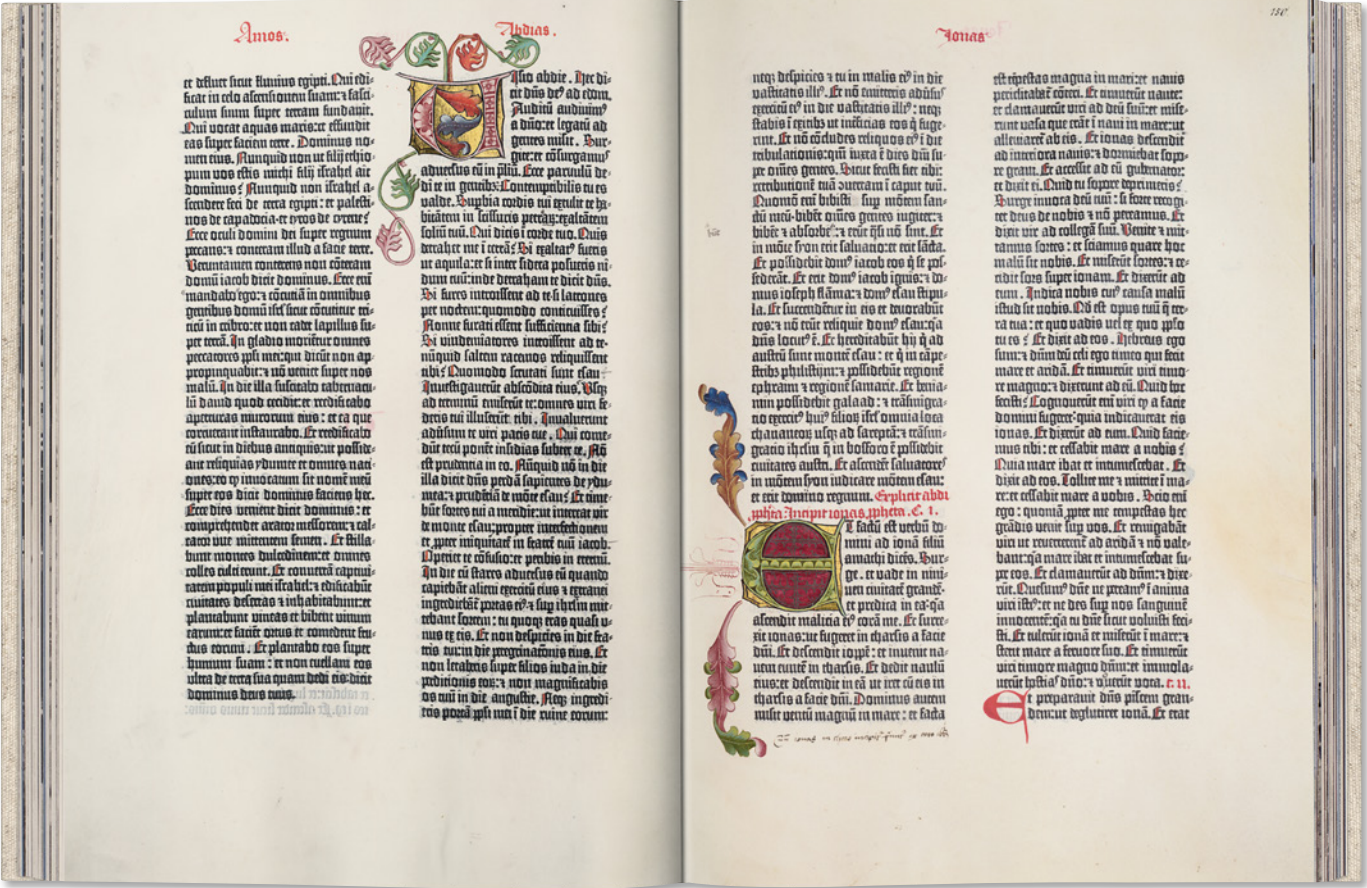 Amos.
et defluet sicut fluuius egipti. Qui edi-
ficat in celo ascensionem suam: ⁊ fasci-
culum suum super terram fundauit.
Qui vocat aquas maris: et effundit
eas super faciem terre. Dominus no-
men eius. Nunquid non ut filij ethio-
pum vos estis michi filij israhel ait
dominus? Nunquid non israhel a-
scendere feci de terra egipti: et palesti-
nos de capadocia et tyros de cyrene?
Ecce oculi domini dei super regnum
peccans: ⁊ conteram illud a facie terre.
Verumtamen conterens non cōteram
domū iacob dicit dominus. Ecce eni
mandabo ego: ⁊ cōcutiā in omnibus
gentibus domū isrl sicut cōcutitur tri-
ticū in cribro: et non cadet lapillus su-
per terrā. In gladio morient omnes
peccatores ppli mei: qui dicūt non ap-
propinquabit: ⁊ nō veniet super nos
malū. In die illa suscitabo tabernacu-
lū dauid quod cecidit: et reedificabo
aperturas murorum eius: et ea que
corruerant instaurabo. Et reedificabo
eū sicut in diebus antiquis: ut posside-
ant reliquias ydumee et omnes nati-
ones: eo qȝ inuocatum sit nomē meū
super eos dicit dominus faciens hec.
Ecce dies venient dicit dominus: et
comprehendet arator messorem: ⁊ cal-
cator vue mittentem semen. Et stilla-
bunt montes dulcedinem: et omnes
colles culti erunt. Et conuertā captiui-
tatem populi mei israhel: ⁊ edificabūt
ciuitates desertas ⁊ inhabitabunt: et
plantabunt vineas et bibent vinum
earum: et faciēt ortus et comedent fru-
ctus eorum. Et plantabo eos super
humum suam: et non euellam eos
ultra de terra sua quam dedi eis: dicit
dominus deus tuus.
Abdias.
Uisio abdie. Hec di-
cit dūs de⁹ ad edom.
Auditū audiuim⁹
a dūo: et legatū ad
gentes misit. Sur-
gite: et cōsurgam⁹
aduersus eū in p̄liū. Ecce paruulū de-
di te in gentib⁹: Contemptibilis tu es
valde. Supbia cordis tui extulit te ha-
bitātem in scissuris petraȝ: exaltātem
soliū tuū. Qui dicis ī corde tuo. Quis
detrahet me ī terrā? Si exaltat⁹ fueris
ut aquila: et si inter sidera posueris ni-
dum tuū: inde detraham te dicit dūs.
Si fures introissent ad te: si latrones
per noctem: quomodo conticuisses?
Nonne furati essent sufficientia sibi?
Si vindemiatores introissent ad te:
nūquid saltem racemos reliquissent
tibi? Quomodo scrutati sunt esau:
Inuestigauerūt abscōdita eius? Vsqȝ
ad terminū emiserūt te: omnes viri fe-
deris tui illuserūt tibi. Inualuerunt
aduersum te viri pacis tue. Qui come-
dūt tecū ponēt insidias subter te. Nō
est prudentia in eo. Nūquid nō in die
illa dicit dūs perdā sapientes de ydu-
mea: ⁊ prudētiā de mōte esau? Et time-
būt fortes tui a meridie: ut intereat vir
de monte esau: propter interfectionem
et ppter iniquitatē in fratrē tuū iacob.
Operiet te cōfusio: et peribis in eternū.
In die cū stares aduersus eū quando
capiebāt alieni exercitū eius ⁊ extranei
ingrediebāt portas ei⁹ ⁊ sup ihrlm mit-
tebant sortem: tu quoqȝ eras quasi v-
nus ex eis. Et non despicies in die fra-
tris tui: in die peregrinatōnis eius. Et
non letaberis super filios iuda in die
perditionis eorȝ: ⁊ non magnificabis
os tuū in die angustie. Neqȝ ingredi-
eris portā ppli mei ī die ruine eorum:
Ionas
neqȝ despicies ⁊ tu in malis ei⁹ in die
vastitatis illi⁹. Et nō emitteris aduersus
exercitū ei⁹ in die vastitatis illi⁹: neqȝ
stabis ī exitib⁹ ut inficias eos q̄ fuge-
rint. Et nō cōcludes reliquos ei⁹ ī die
tribulationis: qm̄ iuxta ē dies dūi su-
per omēs gentes. Sicut fecisti fiet tibi:
retributionē tuā ꝯuertam ī caput tuū.
Quomō eni bibistis sup mōtem san-
ctū meū: bibēt omēs gentes iugiter: ⁊
bibēt ⁊ absorbēt: ⁊ erūt q̄si nō sint. Et
in mōte syon erit saluatio: et erit sāctus.
Et possidebit dom⁹ iacob eos q̄ se pos-
sederāt. Et erit dom⁹ iacob ignis: ⁊ do-
mus ioseph flāma: ⁊ dom⁹ esau stipu-
la. Et succendētur in eis et deuorabūt
eos: ⁊ nō erūt reliquie dom⁹ esau: qa
dūs locut⁹ ē. Et hereditabūt hij q̄ ad
austrū sunt montē esau: et q̄ in cāpe-
strib⁹ philistijm: ⁊ possidebūt regionē
ephraim ⁊ regionē samarie. Et benia-
min possidebit galaad: ⁊ trāsmigra-
tio exercit⁹ hui⁹ filioȝ isrl omnia loca
chananeoȝ usqȝ ad sareptā: ⁊ trāsmi-
gratio ihrlm q̄ in bosforo ē possidebit
ciuitates austri. Et ascendēt saluatores
in mōtem syon iudicare mōtem esau:
et erit domino regnum. Explicit abdi
ppheta Incipit ionas ppheta. C. I.
Et factū est verbū do-
mini ad ionā filiū
amathi dicēs. Sur-
ge. et vade in nini-
uen ciuitatē grandē:
et predica in ea: qa
ascendit malicia ei⁹ corā me. Et surre-
xit ionas: ut fugeret in tharsis a facie
dūi. Et descendit ioppē: et inuenit na-
uem euntē in tharsis. Et dedit naulū
eius: et descendit in eā ut iret cū eis in
tharsis a facie dūi. Dominus autem
misit ventū magnū in mare: et facta
150.
est tēpestas magna in mari: et nauis
periclitabat cōteri. Et timuerūt naute:
et clamauerūt viri ad deū suū: et mise-
runt vasa que erāt ī naui in mare: ut
alleuiaret ab eis. Et ionas descendit
ad interiora nauis: ⁊ dormiebat sopo-
re graui. Et accessit ad eū gubernator:
et dixit ei. Quid tu sopore deprimeris?
Surge inuoca deū tuū: si forte recogi-
tet deus de nobis ⁊ nō pereamus. Et
dixit vir ad collegā suū. Venite ⁊ mit-
tamus sortes: et sciamus quare hoc
malū sit nobis. Et miserūt sortes: ⁊ ce-
cidit sors super ionam. Et dixerūt ad
eum. Indica nobis cui⁹ causa malū
istud sit nobis. Qd est opus tuū q̄ ter-
ra tua: et quo vadis vel ex quo pplo
tu es? Et dixit ad eos. Hebreus ego
sum: ⁊ dūm deū celi ego timeo qui fecit
mare et aridā. Et timuerūt viri timo-
re magno: ⁊ dixerunt ad eū. Quid hoc
fecisti? Cognouerūt eni viri qȝ a facie
domini fugeret: quia indicauerat eis
ionas. Et dixerūt ad eum. Quid facie-
mus tibi: et cessabit mare a nobis?
Quia mare ibat et intumescebat. Et
dixit ad eos. Tollite me ⁊ mittite ī ma-
re: et cessabit mare a vobis. Scio eni
ego: quoniā ppter me tempestas hec
grādis venit sup vos. Et remigabāt
viri ut reuerterent ad aridā ⁊ nō vale-
bant: qa mare ibat et intumescebat su-
per eos. Et clamauerūt ad dūm: ⁊ dixe-
rūt. Quesum⁹ dūe ne peream⁹ ī anima
viri isti⁹: et ne des sup nos sanguinē
innocentē: qa tu dūe sicut voluisti feci-
sti. Et tulerūt ionā et miserūt ī mare: ⁊
stetit mare a feruore suo. Et timuerūt
viri timore magno dūm: et immola-
uerūt hostias dūo: ⁊ vouerūt vota. c. II.
Et preparauit dūs piscem gran-
dem: ut deglutiret ionā. Et erat